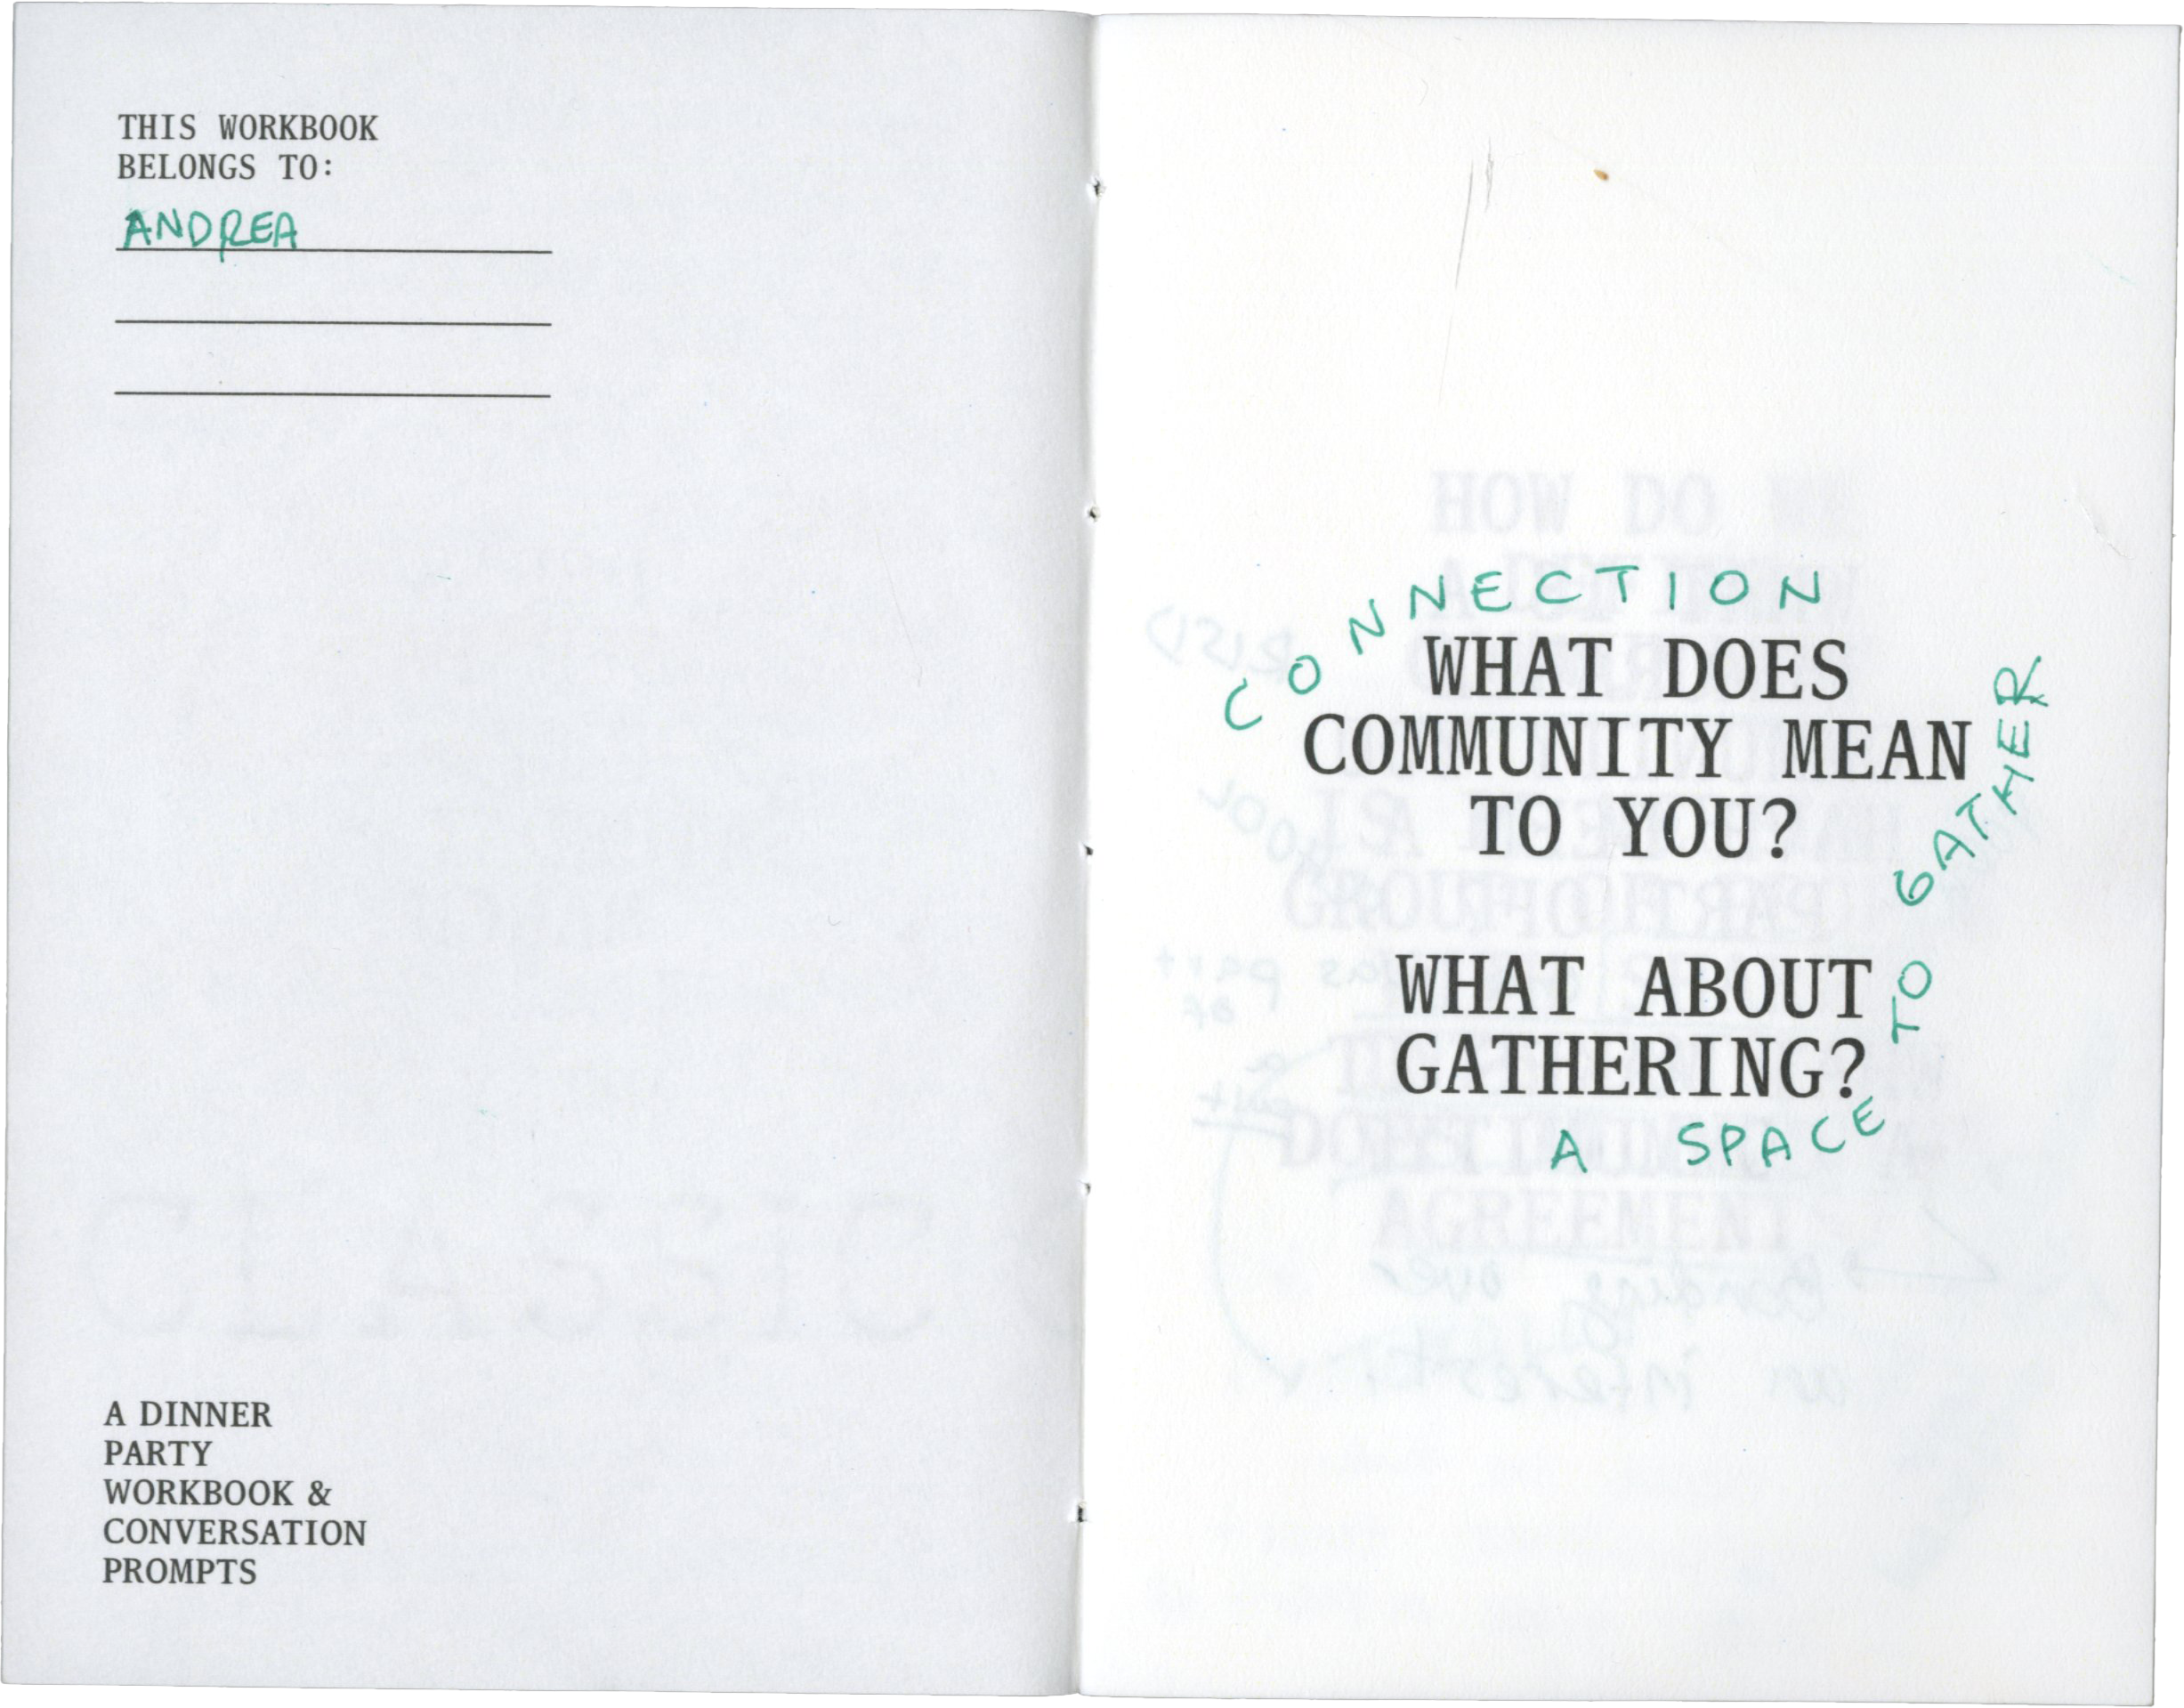 THIS WORKBOOK
BELONGS TO:
ANDREA
A DINNER
PARTY
WORKBOOK &
CONVERSATION
PROMPTS
CONNECTION
WHAT DOES
COMMUNITY MEAN
TO YOU?
WHAT ABOUT
GATHERING?
A SPACE
TO GATHER
HOW DO
AGREEMENT